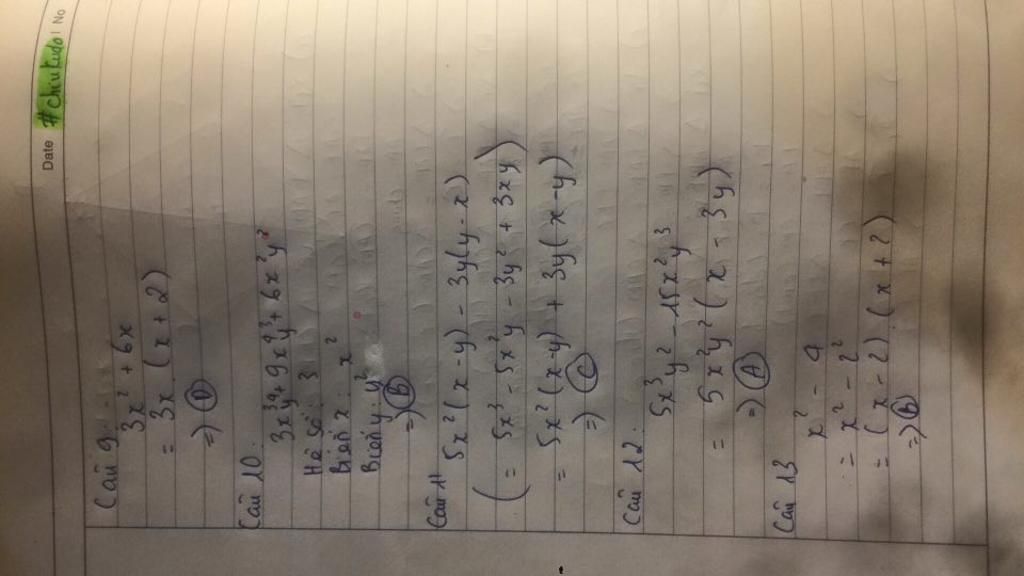 Date #chiukudo No
Câu 9.
3x² + 6x
= 3x (x + 2)
=) Ⓓ
Câu 10.
3x³y⁴ + 9x²y³ + 6x²y²
Hệ số 3
Biến x. x²
Biến y y²
=) Ⓑ
Câu 11
5x² (x - y) - 3y(y - x)
( = 5x³ - 5x²y - 3y² + 3xy )
= 5x² (x-y) + 3y(x - y)
=) Ⓒ
Câu 12.
5x³y² - 15x²y³
= 5x²y² (x - 3y)
=) Ⓐ
Câu 13
x² - 4
= x² - 2²
= (x - 2) (x + 2)
=) Ⓑ